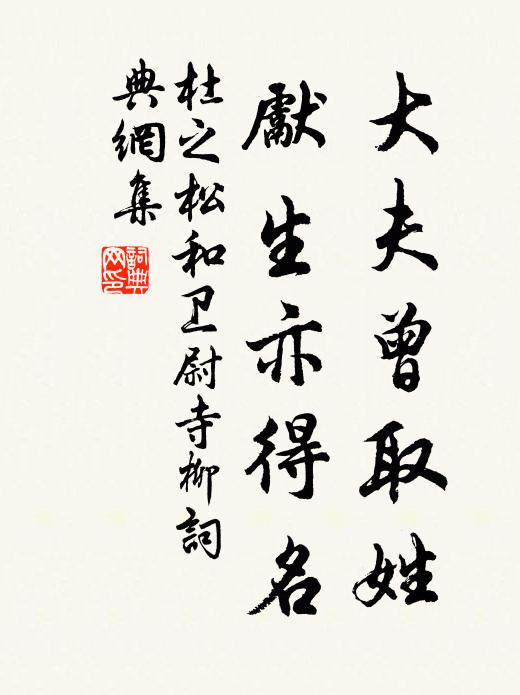 大夫曾取姓
獻生亦得名
杜之松和卫尉寺柳詞
典網集
詞典網印